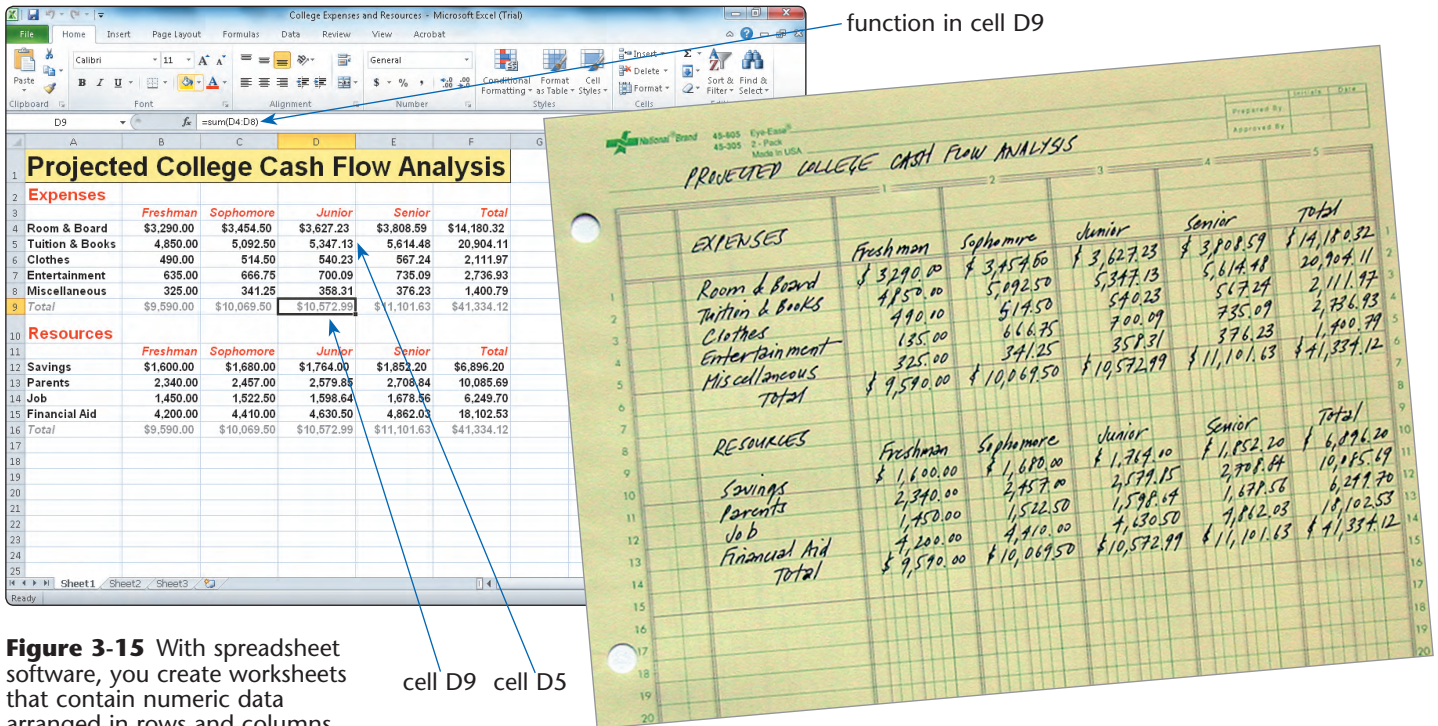 College Expenses and Resources - Microsoft Excel (Trial)
File Home Insert Page Layout Formulas Data Review View Acrobat
Calibri 11 General
Paste Conditional Formatting Format as Table Cell Styles Insert Delete Format Sort & Filter Find & Select
Clipboard Font Alignment Number Styles Cells
D9 fx =sum(D4:D8)
A B C D E F G
1 Projected College Cash Flow Analysis
2 Expenses
3 Freshman Sophomore Junior Senior Total
4 Room & Board $3,290.00 $3,454.50 $3,627.23 $3,808.59 $14,180.32
5 Tuition & Books 4,850.00 5,092.50 5,347.13 5,614.48 20,904.11
6 Clothes 490.00 514.50 540.23 567.24 2,111.97
7 Entertainment 635.00 666.75 700.09 735.09 2,736.93
8 Miscellaneous 325.00 341.25 358.31 376.23 1,400.79
9 Total $9,590.00 $10,069.50 $10,572.99 $11,101.63 $41,334.12
10 Resources
11 Freshman Sophomore Junior Senior Total
12 Savings $1,600.00 $1,680.00 $1,764.00 $1,852.20 $6,896.20
13 Parents 2,340.00 2,457.00 2,579.85 2,708.84 10,085.69
14 Job 1,450.00 1,522.50 1,598.64 1,678.56 6,249.70
15 Financial Aid 4,200.00 4,410.00 4,630.50 4,862.03 18,102.53
16 Total $9,590.00 $10,069.50 $10,572.99 $11,101.63 $41,334.12
17
18
19
20
21
22
23
24
25
Sheet1 Sheet2 Sheet3
Ready
function in cell D9
National Brand 45-605 Eye-Ease®
45-305 2 - Pack
Made in USA
Initials Date
Prepared By
Approved By
PROJECTED COLLEGE CASH FLOW ANALYSIS
1 2 3 4 5
EXPENSES Freshman Sophomore Junior Senior Total
Room & Board $ 3,290.00 $ 3,454.50 $ 3,627.23 $ 3,808.59 $ 14,180.32
Tuition & Books 4,850.00 5,092.50 5,347.13 5,614.48 20,904.11
Clothes 490.00 514.50 540.23 567.24 2,111.97
Entertainment 635.00 666.75 700.09 735.09 2,736.93
Miscellaneous 325.00 341.25 358.31 376.23 1,400.79
Total $ 9,590.00 $ 10,069.50 $ 10,572.99 $ 11,101.63 $ 41,334.12
RESOURCES Freshman Sophomore Junior Senior Total
Savings $ 1,600.00 $ 1,680.00 $ 1,764.00 $ 1,852.20 $ 6,896.20
Parents 2,340.00 2,457.00 2,579.85 2,708.84 10,085.69
Job 1,450.00 1,522.50 1,598.64 1,678.56 6,249.70
Financial Aid 4,200.00 4,410.00 4,630.50 4,862.03 18,102.53
Total $ 9,590.00 $ 10,069.50 $ 10,572.99 $ 11,101.63 $ 41,334.12
cell D9 cell D5
Figure 3-15 With spreadsheet
software, you create worksheets
that contain numeric data
arranged in rows and columns